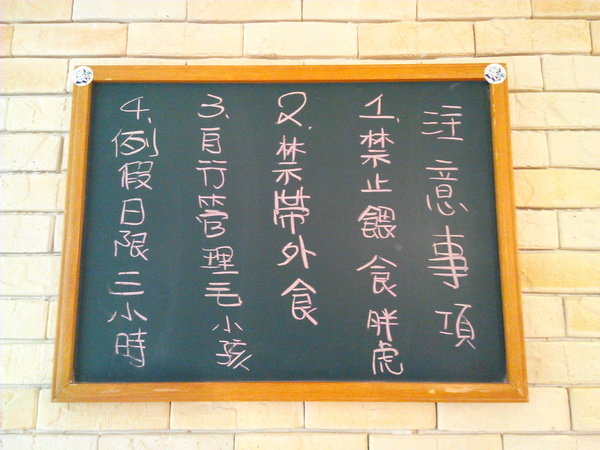 注意事項
1.禁止餵食胖虎
2.禁帶外食
3.自行管理毛小孩
4.例假日限三小時